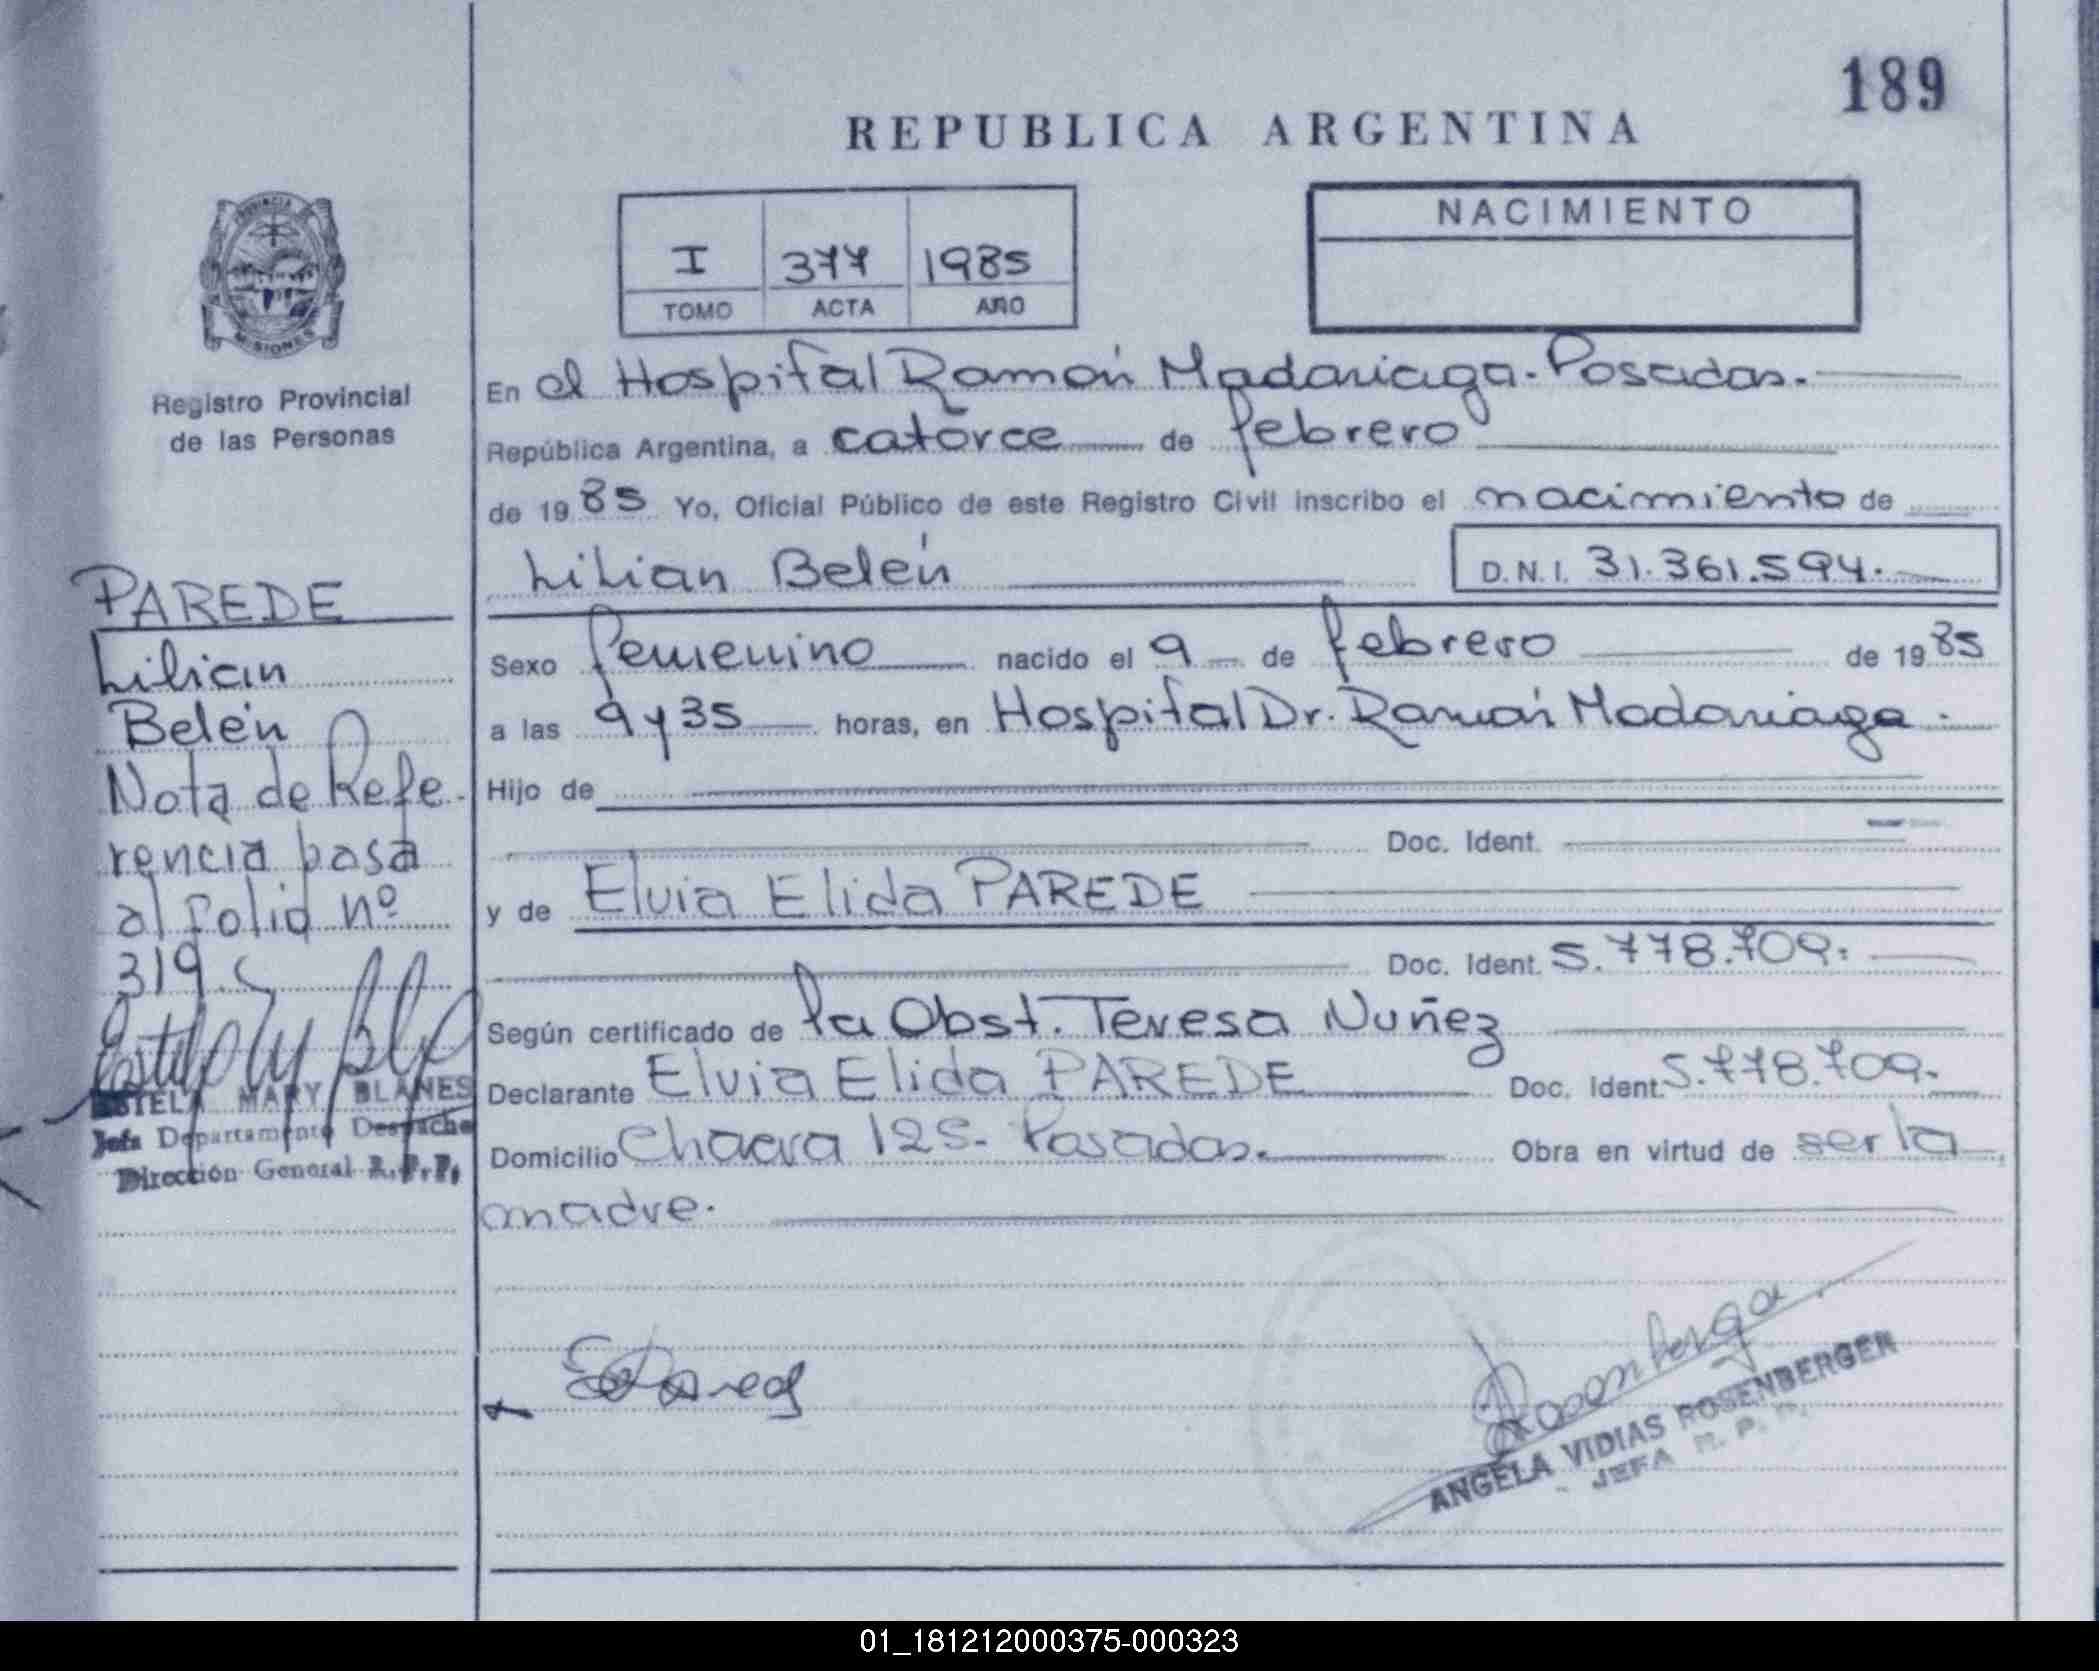 189
REPUBLICA ARGENTINA
PROVINCIA
MISIONES
Registro Provincial
de las Personas
I 377 1985
TOMO ACTA AÑO
NACIMIENTO
En el Hospital Ramón Madariaga. Posadas.
República Argentina, a catorce de febrero
de 1985 Yo, Oficial Público de este Registro Civil inscribo el nacimiento de
Lilian Belén D.N.I. 31.361.594.
Sexo femenino nacido el 9 de febrero de 1985
a las 9 y 35 horas, en Hospital Dr. Ramón Madariaga.
Hijo de
Doc. Ident.
y de Elvia Elida PAREDE
Doc. Ident. 5.778.709.
Según certificado de la Obst. Teresa Nuñez
Declarante Elvia Elida PAREDE Doc. Ident. 5.778.709.
Domicilio Chacra 125. Posadas. Obra en virtud de ser la
madre.
PAREDE
Lilian
Belén
Nota de Refe-
rencia pasa
al folio nº
319.
ESTELA MARY BLANES
Jefa Departamento Despacho
Dirección General R.P.P.
ANGELA VIDIAS ROSENBERGER
JEFA R. P. P.
01_181212000375-000323